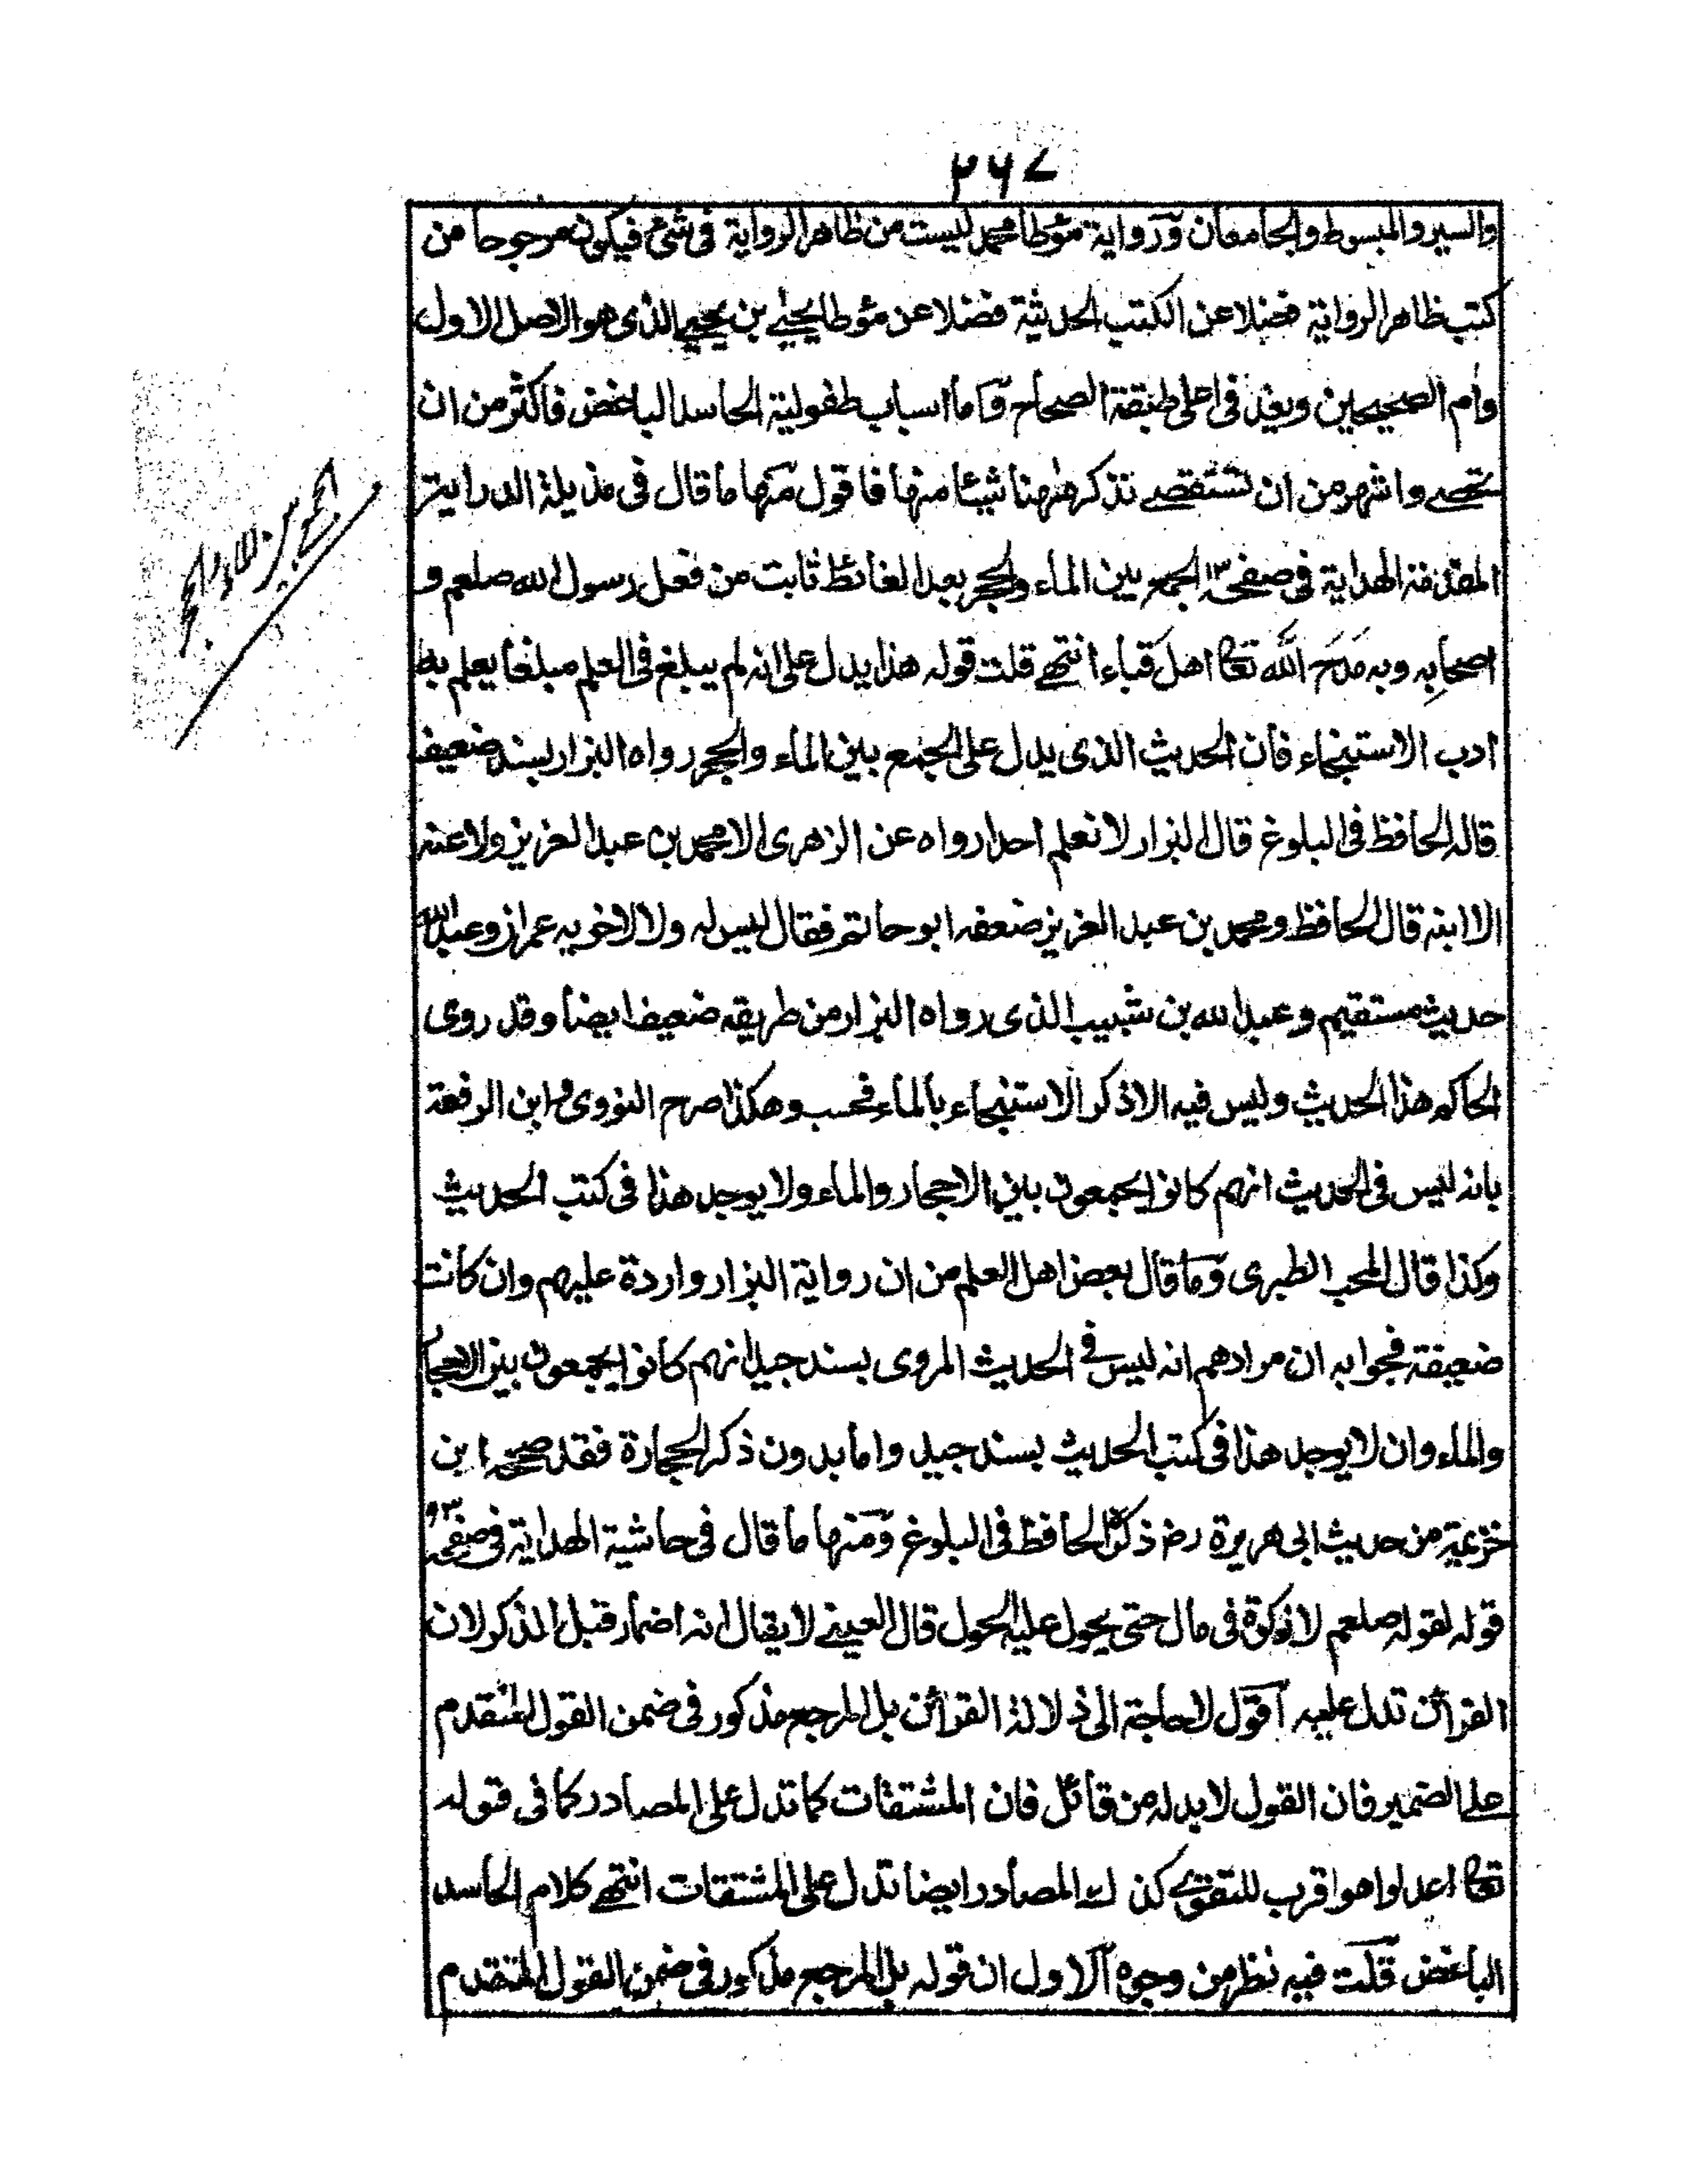 ٢٦٧
والسير والمبسوط والجامعان ورواية مؤطا محمد ليست من ظاهر الرواية فى شئ فيكون مرجوحا من
كتب ظاهر الرواية فضلا عن الكتب الحديثية فضلا عن مؤطا يحيى بن يحيى الذى هو الاصل الاول
وأم الصحيحين ويعد فى اعلى طبقة الصحاح وأما اسباب طفولية الحاسد الباغض فاكثر من ان
تحصے واشهر من ان تستقصے نذكر ههنا شيئا منها فاقول منها ما قال فى مذيلة الدراية
المقدمة الهداية فى صفحہ ١٣ الجمع بين الماء والحجر بعد الغائط ثابت من فعل رسول الله صلعم و
اصحابه وبه مَدَحَ الله تعا اهل قباء انتهے قلت قوله هذا يدل على انه لم يبلغ فى العلم مبلغا يعلم به
ادب الاستنجاء فان الحديث الذى يدل على الجمع بين الماء والحجر رواه البزار بسند ضعيف
قاله الحافظ فى البلوغ قال البزار لا نعلم احدا رواه عن الزهرى الا محمد بن عبد العزيز ولا عنه
الا ابنه قال الحافظ ومحمد بن عبد العزيز ضعفه ابو حاتم فقال ليس له ولا لاخويه عمران وعبد الله
حديث مستقيم وعبد الله بن شبيب الذى رواه البزار من طريقه ضعيف ايضا وقد روى
الحاكم هذا الحديث وليس فيه الا ذكر الاستنجاء بالماء فحسب وهكذا صرح النووى وابن الرفعة
بانه ليس فى الحديث انهم كانوا يجمعون بين الاحجار والماء ولا يوجد هذا فى كتب الحديث
وكذا قال المحب الطبرى وما قال بعض اهل العلم من ان رواية البزار واردة عليهم وان كانت
ضعيفة فجوابه ان مرادهم انه ليس فے الحديث المروى بسند جيد انهم كانوا يجمعون بين الاحجار
والماء وان لا يوجد هذا فى كتب الحديث بسند جيد واما بدون ذكر الحجارة فقد صححه ابن
خزيمة من حديث ابى هريرة رض ذكره الحافظ فى البلوغ ومنها ما قال فى حاشية الهداية فى صفحہ
قوله لقوله صلعم لا زكوة فى مال حتى يحول عليه الحول قال العينے لا يقال انه اضمار قبل الذكر لان
القرائن تدل عليه اقول لا حاجة الى دلالة القرائن بل المرجع مذكور فى ضمن القول المتقدم
على الضمير فان القول لا بد له من قائل فان المشتقات كما تدل على المصادر كما فى قوله
تعا اعدلوا هو اقرب للتقوے كذلك المصادر ايضا تدل على المشتقات انتهے كلام الحاسد
الباغض قلت فيه نظر من وجوه الاول ان قوله بل المرجع مذكور فى ضمن القول المتقدم